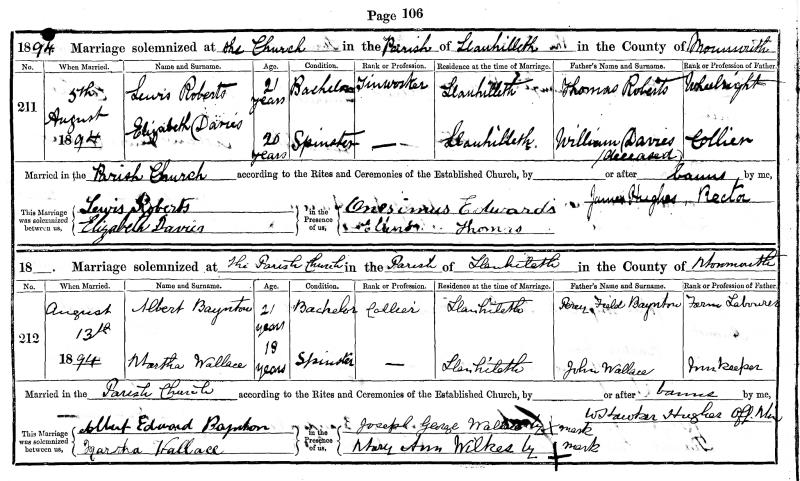 Page 106
1894 Marriage solemnized at the Church in the Parish of Llanhilleth in the County of Monmouth
No. When Married. Name and Surname. Age. Condition. Rank or Profession. Residence at the time of Marriage. Father's Name and Surname. Rank or Profession of Father.
211 5th August 1894 Lewis Roberts 21 years Bachelor Tinworker Llanhilleth Thomas Roberts Wheelright
Elizabeth Davies 20 years Spinster — Llanhilleth. William Davies (deceased) Collier
Married in the Parish Church according to the Rites and Ceremonies of the Established Church, by or after banns by me,
This Marriage was solemnized between us, Lewis Roberts Elizabeth Davies in the Presence of us, Onesimus Edwards Thomas James Hughes, Rector
18 . Marriage solemnized at the Parish Church in the Parish of Llanhileth in the County of Monmouth
No. When Married. Name and Surname. Age. Condition. Rank or Profession. Residence at the time of Marriage. Father's Name and Surname. Rank or Profession of Father.
212 August 13th 1894 Albert Baynton 21 years Bachelor Collier Llanhileth Field Baynton Farm Labourer
Martha Wallace 19 years Spinster — Llanhileth John Wallace Innkeeper
Married in the Parish Church according to the Rites and Ceremonies of the Established Church, by or after banns by me,
This Marriage was solemnized between us, Albert Edward Baynton Martha Wallace in the Presence of us, Joseph George by + mark Mary Ann Wilkes by + mark Hughes Off. Min